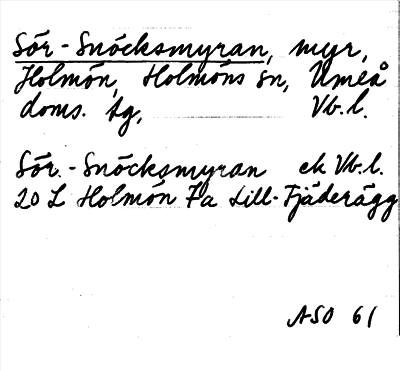 Sör-Snöcksmyran, myr,
Holmön, Holmöns sn, Umeå
doms. tg, Vb.l.
Sör-Snöcksmyran ek Vb.l.
20 L Holmön 7a Lill-Fjäderägg
ASO 61